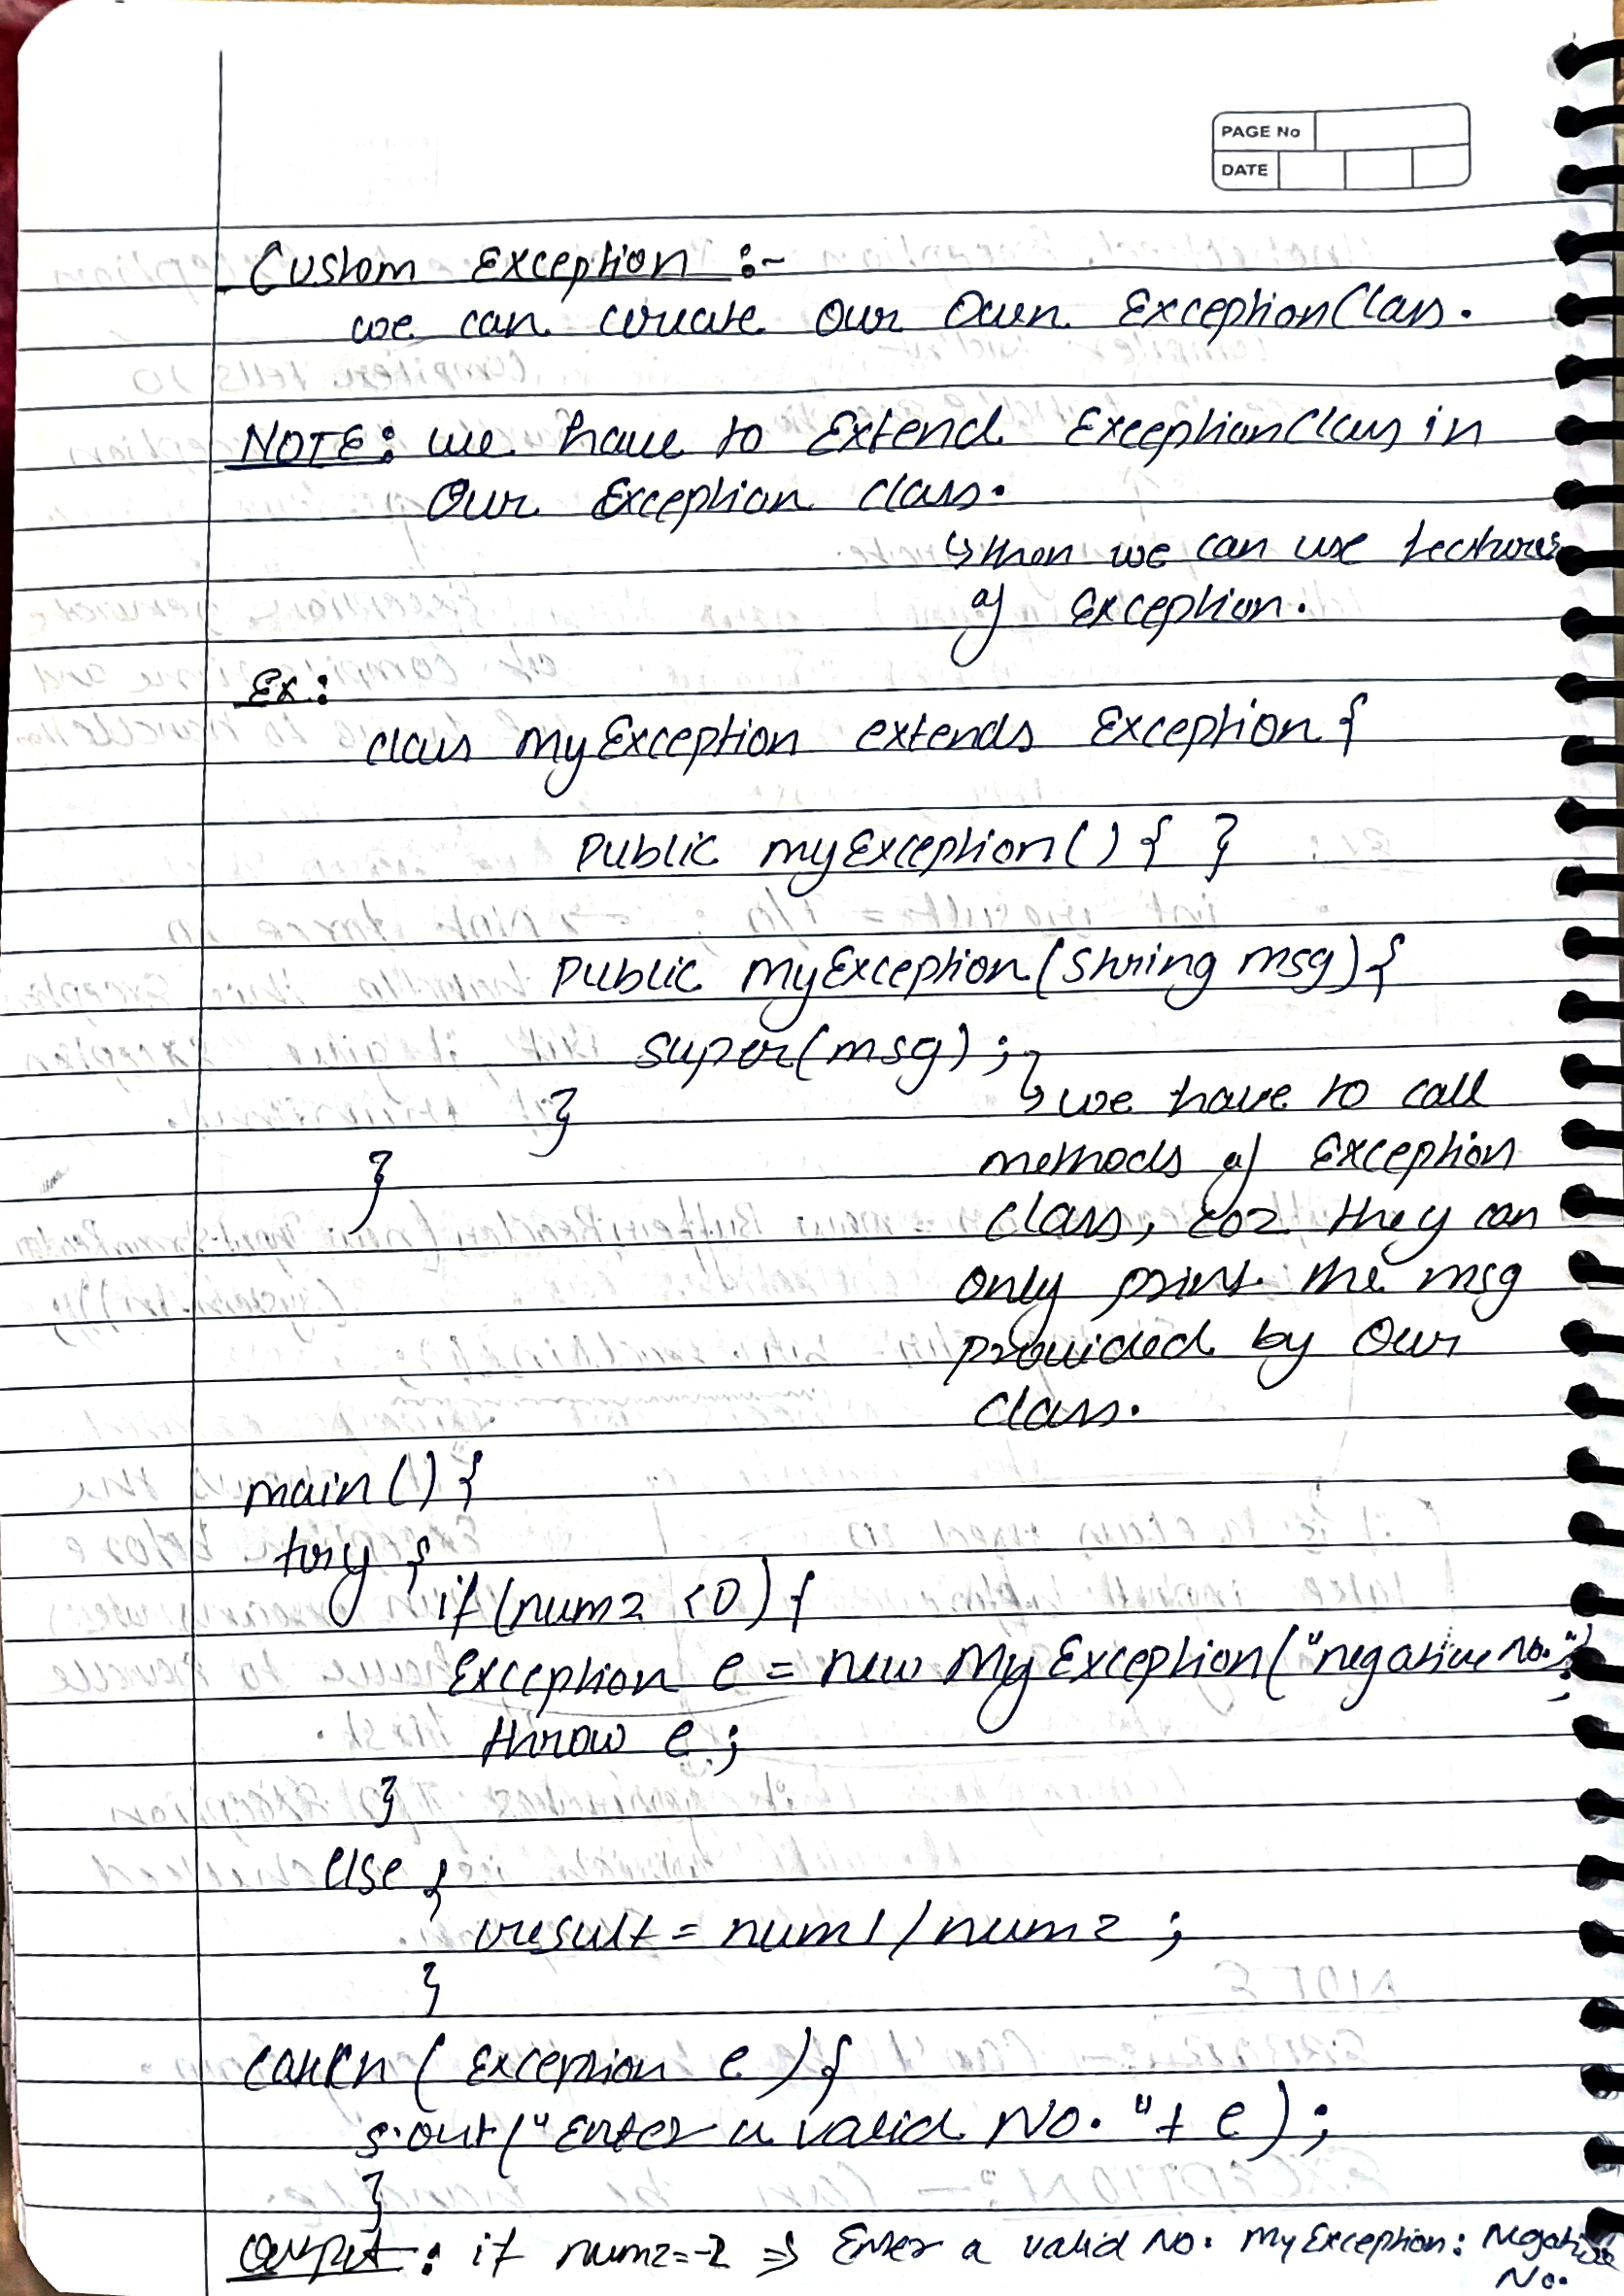 PAGE No
DATE
Custom Exception :-
we can create our Own ExceptionClass.
NOTE: we have to Extend ExceptionClass in
Our Exception class.
↳ then we can use features
of Exception.
Ex:
class myException extends Exception {
Public myException() { }
Public myException(String msg) {
super(msg);
↳ we have to call
}
methods of Exception
}
class, coz they can
only print the msg
provided by Our
class.
main() {
try {
if (num2 <0) {
Exception e = new MyException("negative No.");
throw e;
}
else {
result = num1/num2;
}
catch (Exception e) {
s.out("Enter a valid No. "+ e);
}
Output: if num2=-2 ⇒ Enter a valid No. MyException: Negative
No.